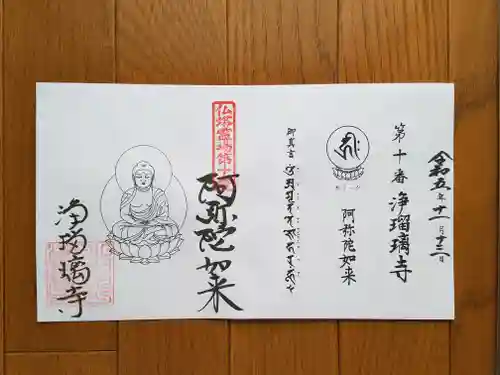 令和五年十一月十三日
第十番 浄瑠璃寺
阿弥陀如来
御真言
仏塔霊場第十番
阿弥陀如来
浄瑠璃寺